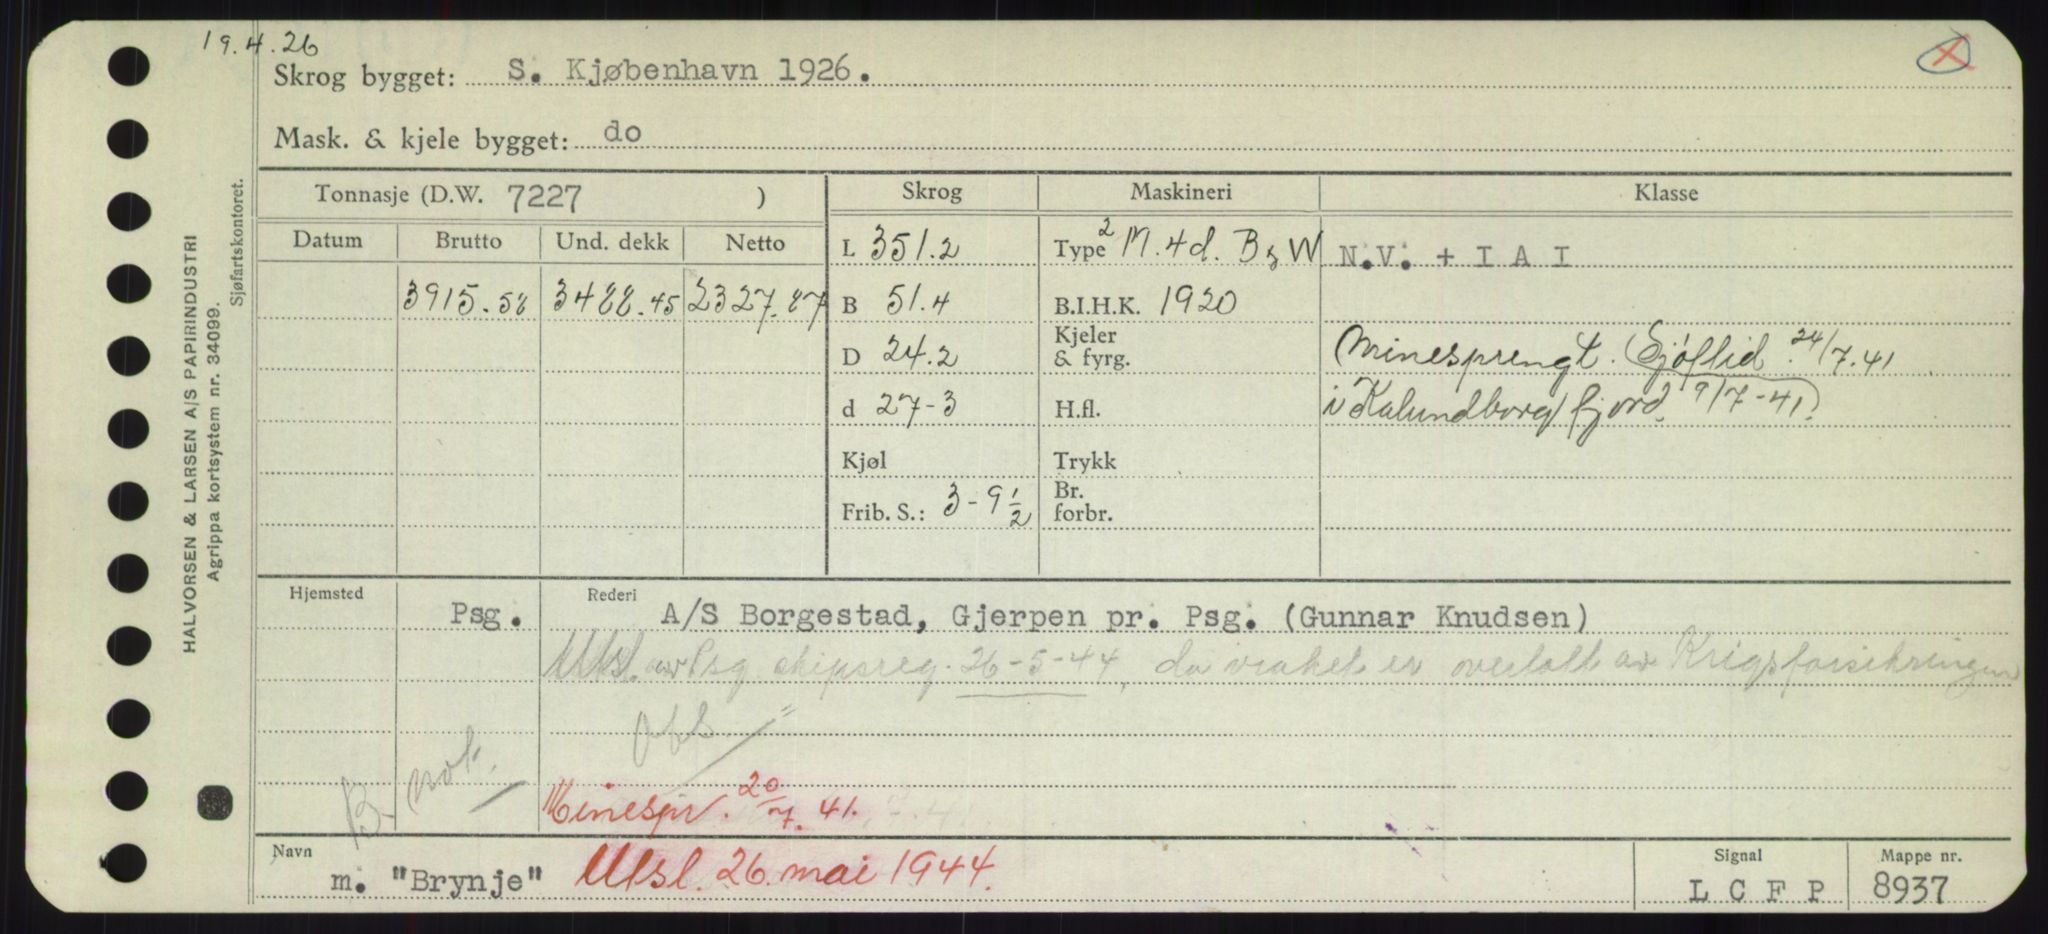 19.4.26
Skrog bygget: S. Kjøbenhavn 1926.
Mask. & kjele bygget: do
Tonnasje (D.W. 7227 )
Skrog
Maskineri
Klasse
Datum Brutto Und. dekk Netto
3915.58 3488.45 2327.87
L 351.2
B 51.4
D 24.2
d 27-3
Kjøl
Frib. S.: 3-9 1/2
Type 2 M. 4d. B & W
B.I.H.K. 1920
Kjeler
& fyrg.
H.fl.
Trykk
Br.
forbr.
N.V. + I A I
Minesprengt. (Sjøflid 24/7.41
i Kalundborg fjord 9/7-41)
Hjemsted
Psg.
Rederi
A/S Borgestad, Gjerpen pr. Psg. (Gunnar Knudsen)
Utsl. av Psg skipsreg. 26-5-44, da vraket er overlatt av Krigsforsikringen
B. not.
Minespr. 20/7.41.
Navn
m. "Brynje" Utsl. 26. mai 1944.
Signal
L C F P
Mappe nr.
8937
HALVORSEN & LARSEN A/S PAPIRINDUSTRI
Agrippa kortsystem nr. 34099.
Sjøfartskontoret.